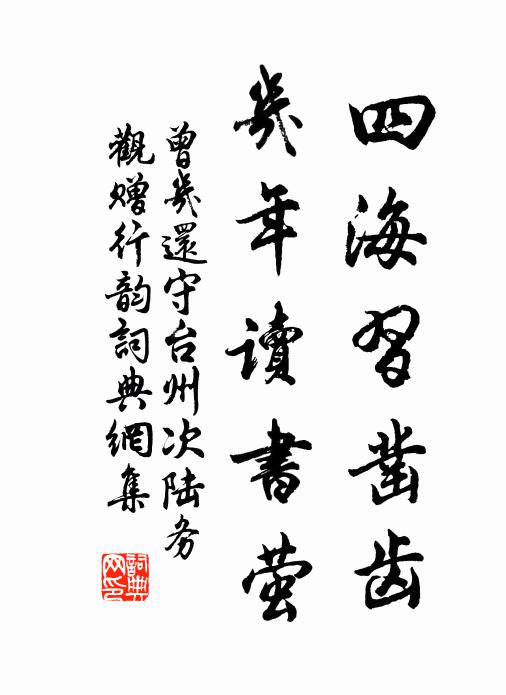 四海習凿齿
幾年讀書萤
曾幾還守台州次陆务
觀赠行韵詞典網集
詞典
网印